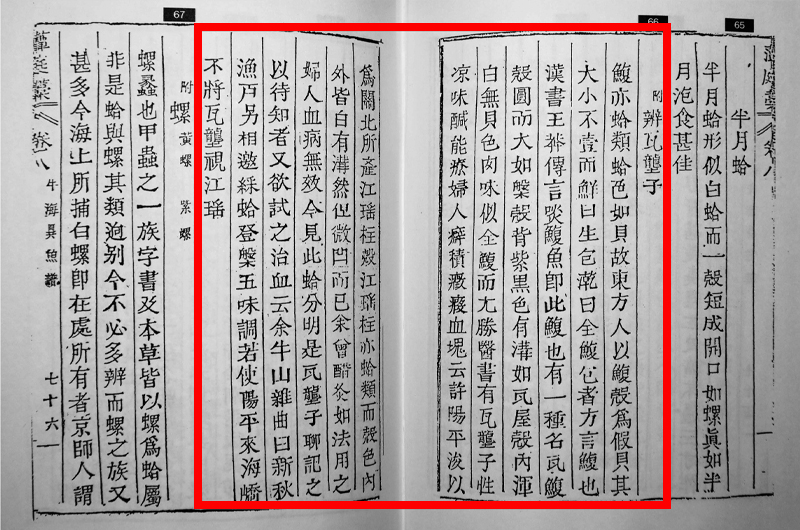 65
66
67
半月蛤
半月蛤形似白蛤而一殼短成開口如螺眞如半
月泡食甚佳
附辨瓦壟子
鰒亦蛤類蛤色如貝故東方人以鰒殼爲假貝其
大小不壹而鮮曰生包乾曰全鰒包者方言鰒也
漢書王莽傳言啖鰒魚卽此鰒也有一種名瓦鰒
殼圓而大如槃殼背紫黑色有溝如瓦屋殼內渾
白無貝色肉味似全鰒而尤勝醫書有瓦壟子性
凉味醎能療婦人癖積癥瘕血塊云許陽平浚以
爲關北所產江瑤柱殼江瑤柱亦蛤類而殼色內
外皆白有溝然但微凹而已余曾醋灸如法用之
婦人血病無效今見此蛤分明是瓦壟子聊記之
以待知者又欲試之治血云余牛山雜曲曰新秋
漁丏另相邀綵蛤登槃五味調若使陽平來海嶠
不將瓦壟視江瑤
附螺 黃螺 紫螺
螺蠡也甲蟲之一族字書及本草皆以螺爲蛤屬
非是蛤與螺其類逈別今不必多辨而螺之族又
甚多今海上所捕白螺卽在處所有者京師人謂
卷八 牛海異魚譜 七十六